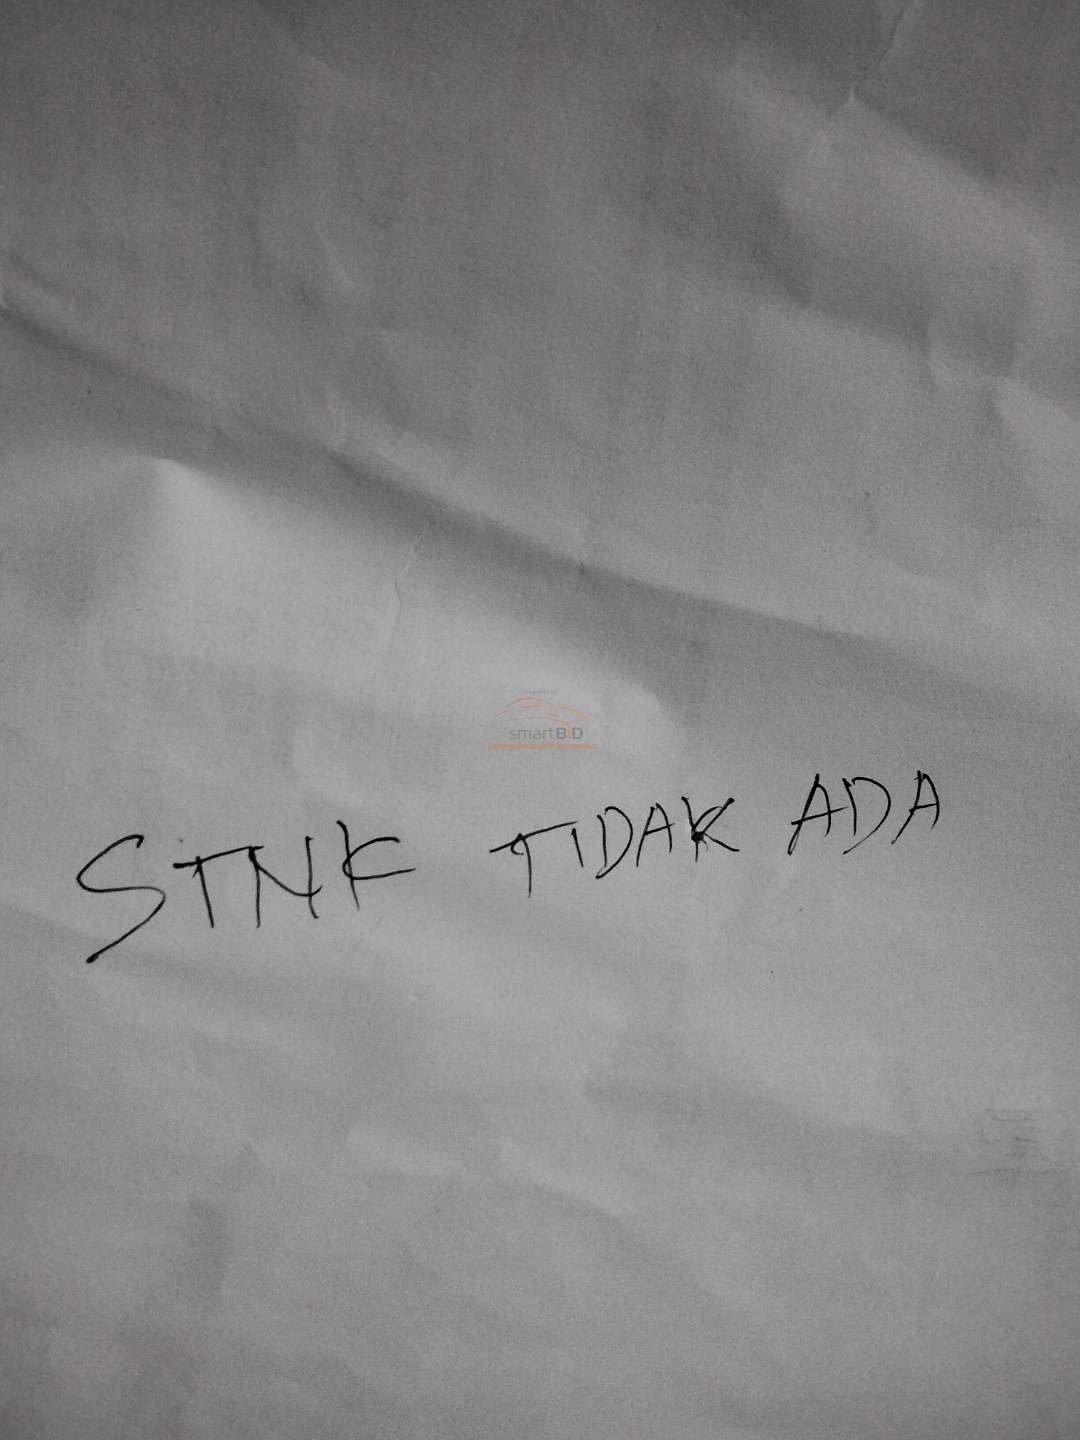 smartBID
STNK TIDAK ADA